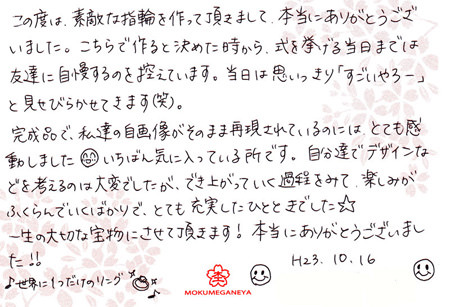 この度は、素敵な指輪を作って頂きまして、本当にありがとうござ
いました。こちらで作ると決めた時から、式を挙げる当日までは
友達に自慢するのを控えています。当日は思いっきり「すごいやろー」
と見せびらかせてきます(笑)。
完成品で、私達の自画像がそのまま再現されているのには、とても感
動しました いちばん気に入っている所です。自分達でデザインな
どを考えるのは大変でしたが、でき上がっていく過程をみて、楽しみが
ふくらんでいくばかりで、とても充実したひとときでした☆
一生の大切な宝物にさせて頂きます!本当にありがとうございまし
た!!
H23.10.16
♪世界に1つだけのリング ♪
MOKUMEGANEYA